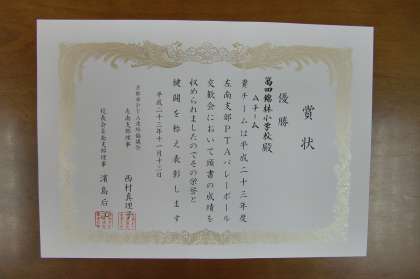 賞状
優勝
第四錦林小学校
Aチーム 殿
貴チームは平成二十三年度
左南支部PTAバレーボール
交歓会において頭書の成績を
収められましたのでその栄誉と
健闘を称え表彰します
平成二十三年十一月十三日
京都市PTA連絡協議会
左南支部理事 西村真理子
校長会左南支部理事 濱島